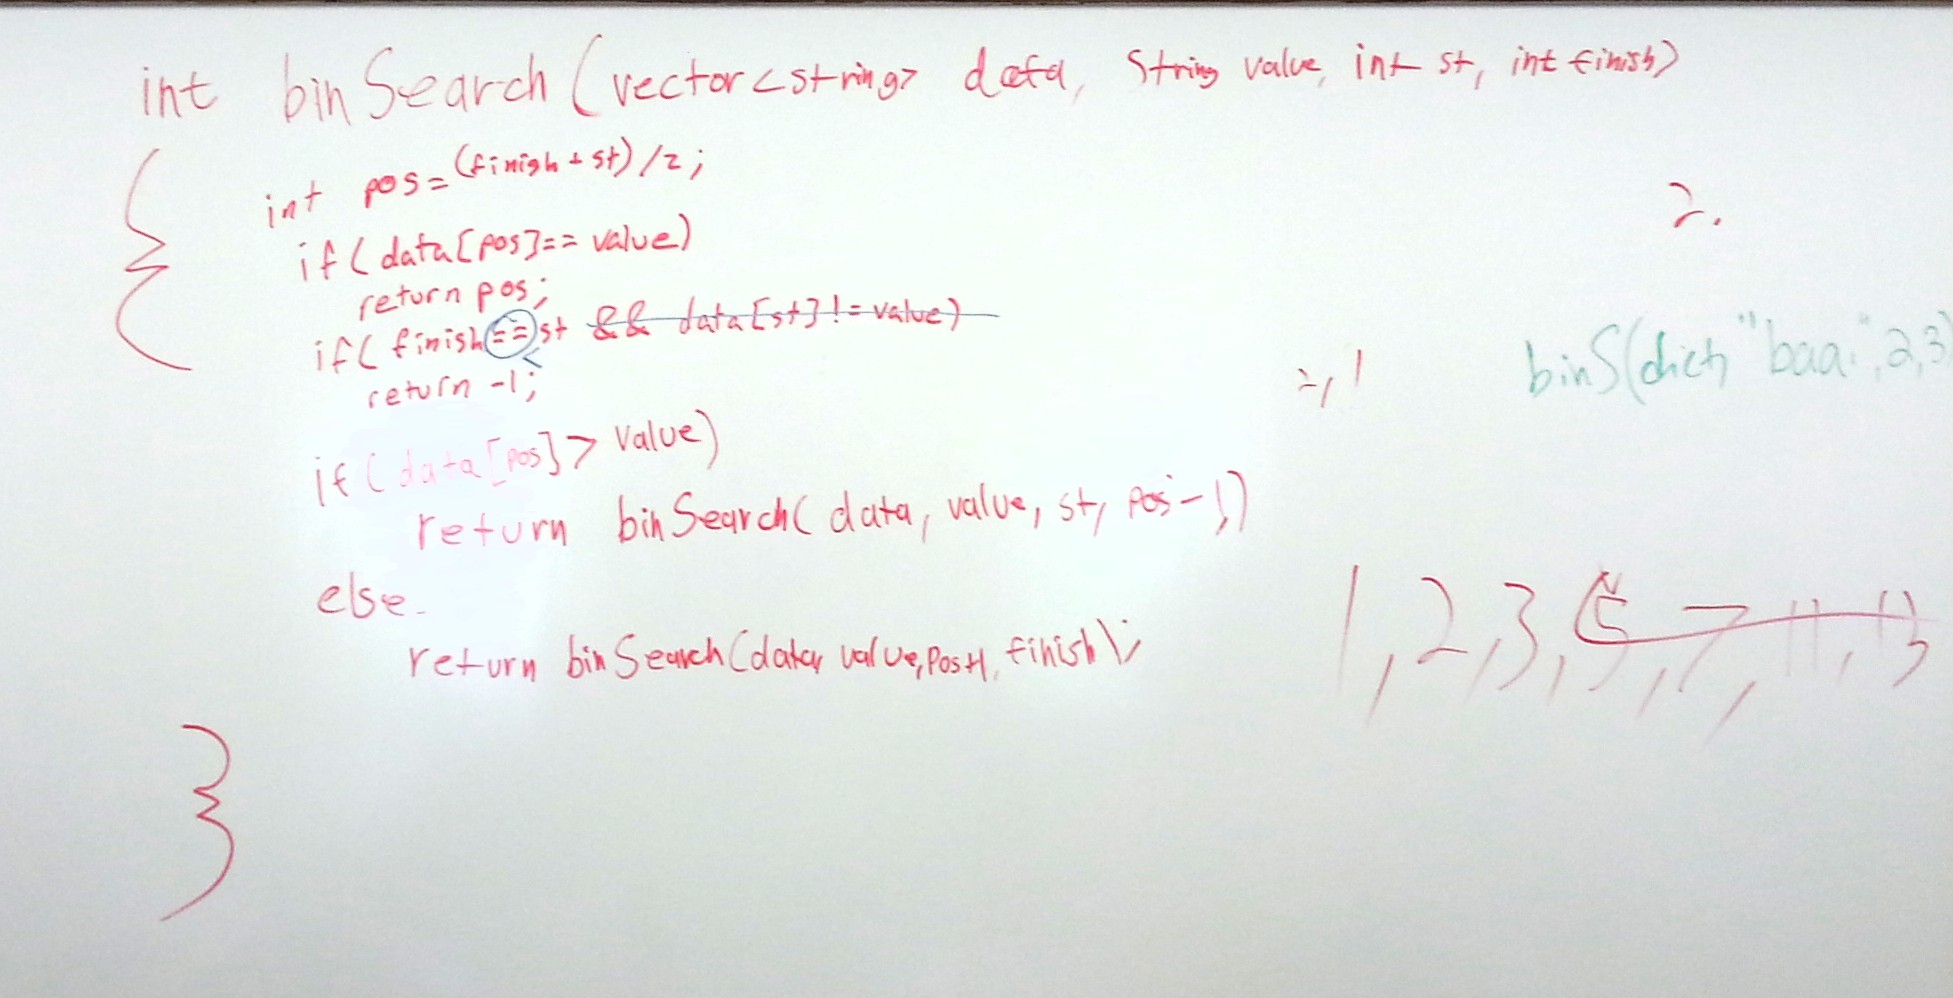 int binSearch(vector<string> data, string value, int st, int finish)
{
int pos=(finish + st)/2;
if(data[pos]== value)
return pos;
if( finish==st && data[st] != value)
<
return -1;
if(data[pos]> value)
return binSearch( data, value, st, pos-1)
else
return binSearch(data, value, pos+1, finish);
}
2.
binS(dict, "baa", 2,3)
1, 2, 3, 5, 7, 11, 13